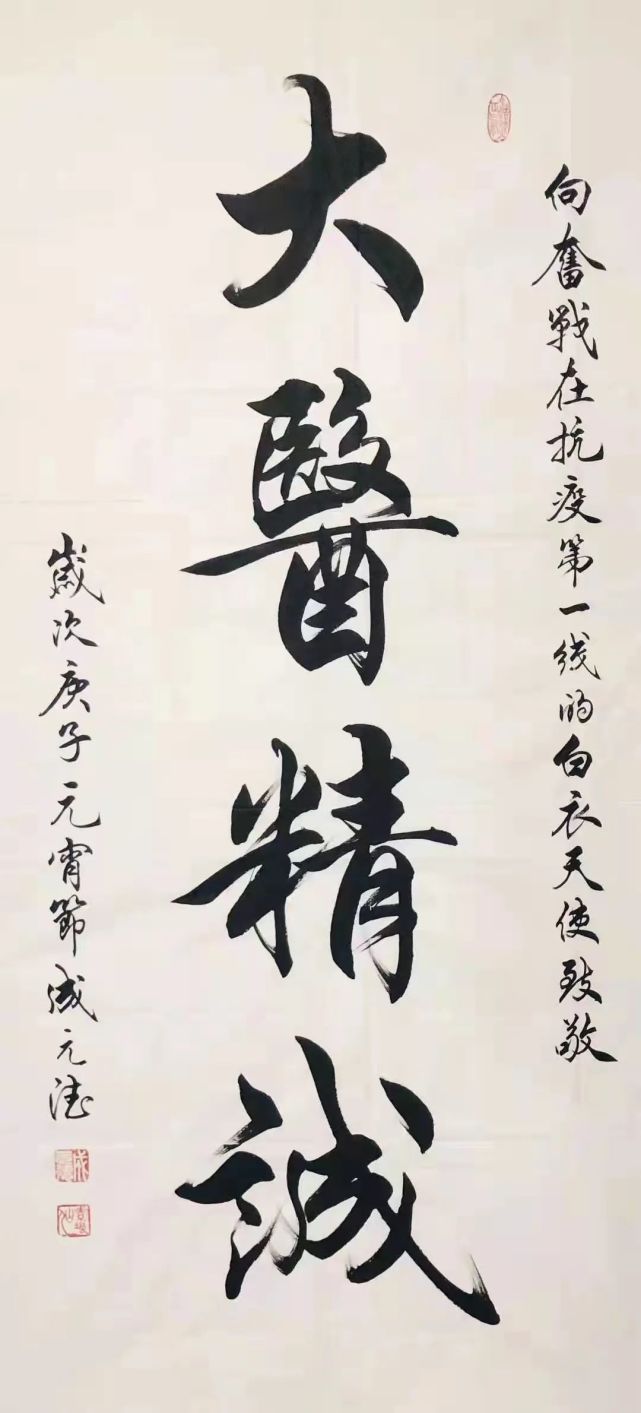 向奮戰在抗疫第一线的白衣天使致敬
大醫精誠
歲次庚子元宵節成元法